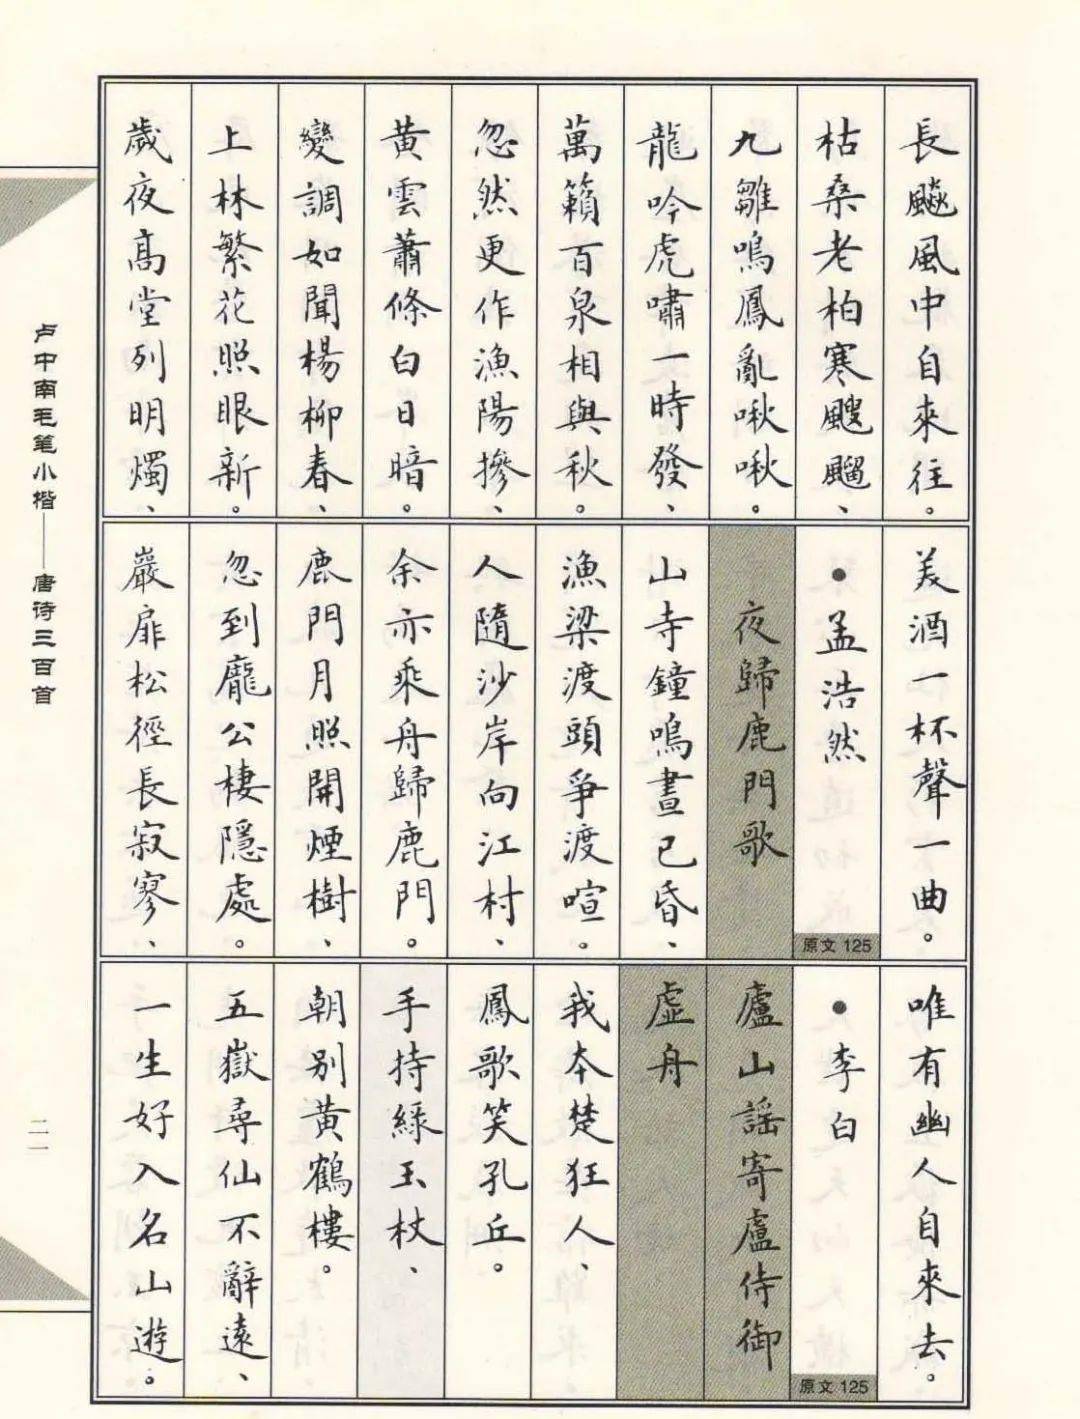 長飈風中自來往。
枯桑老柏寒颼飀、
九雛鳴鳳亂啾啾。
龍吟虎嘯一時發、
萬籟百泉相與秋。
忽然更作漁陽摻、
黃雲蕭條白日暗。
變調如聞楊柳春、
上林繁花照眼新。
歲夜高堂列明燭、
美酒一杯聲一曲。
●孟浩然
原文 125
夜歸鹿門歌
山寺鐘鳴晝已昏、
漁梁渡頭爭渡喧。
人隨沙岸向江村、
余亦乘舟歸鹿門。
鹿門月照開煙樹、
忽到龐公棲隱處。
巖扉松徑長寂寥、
唯有幽人自來去。
●李白
原文 125
廬山謠寄盧侍御
虛舟
我本楚狂人、
鳳歌笑孔丘。
手持綠玉杖、
朝別黃鶴樓。
五嶽尋仙不辭遠、
一生好入名山遊。
卢中南毛笔小楷——唐诗三百首
二一